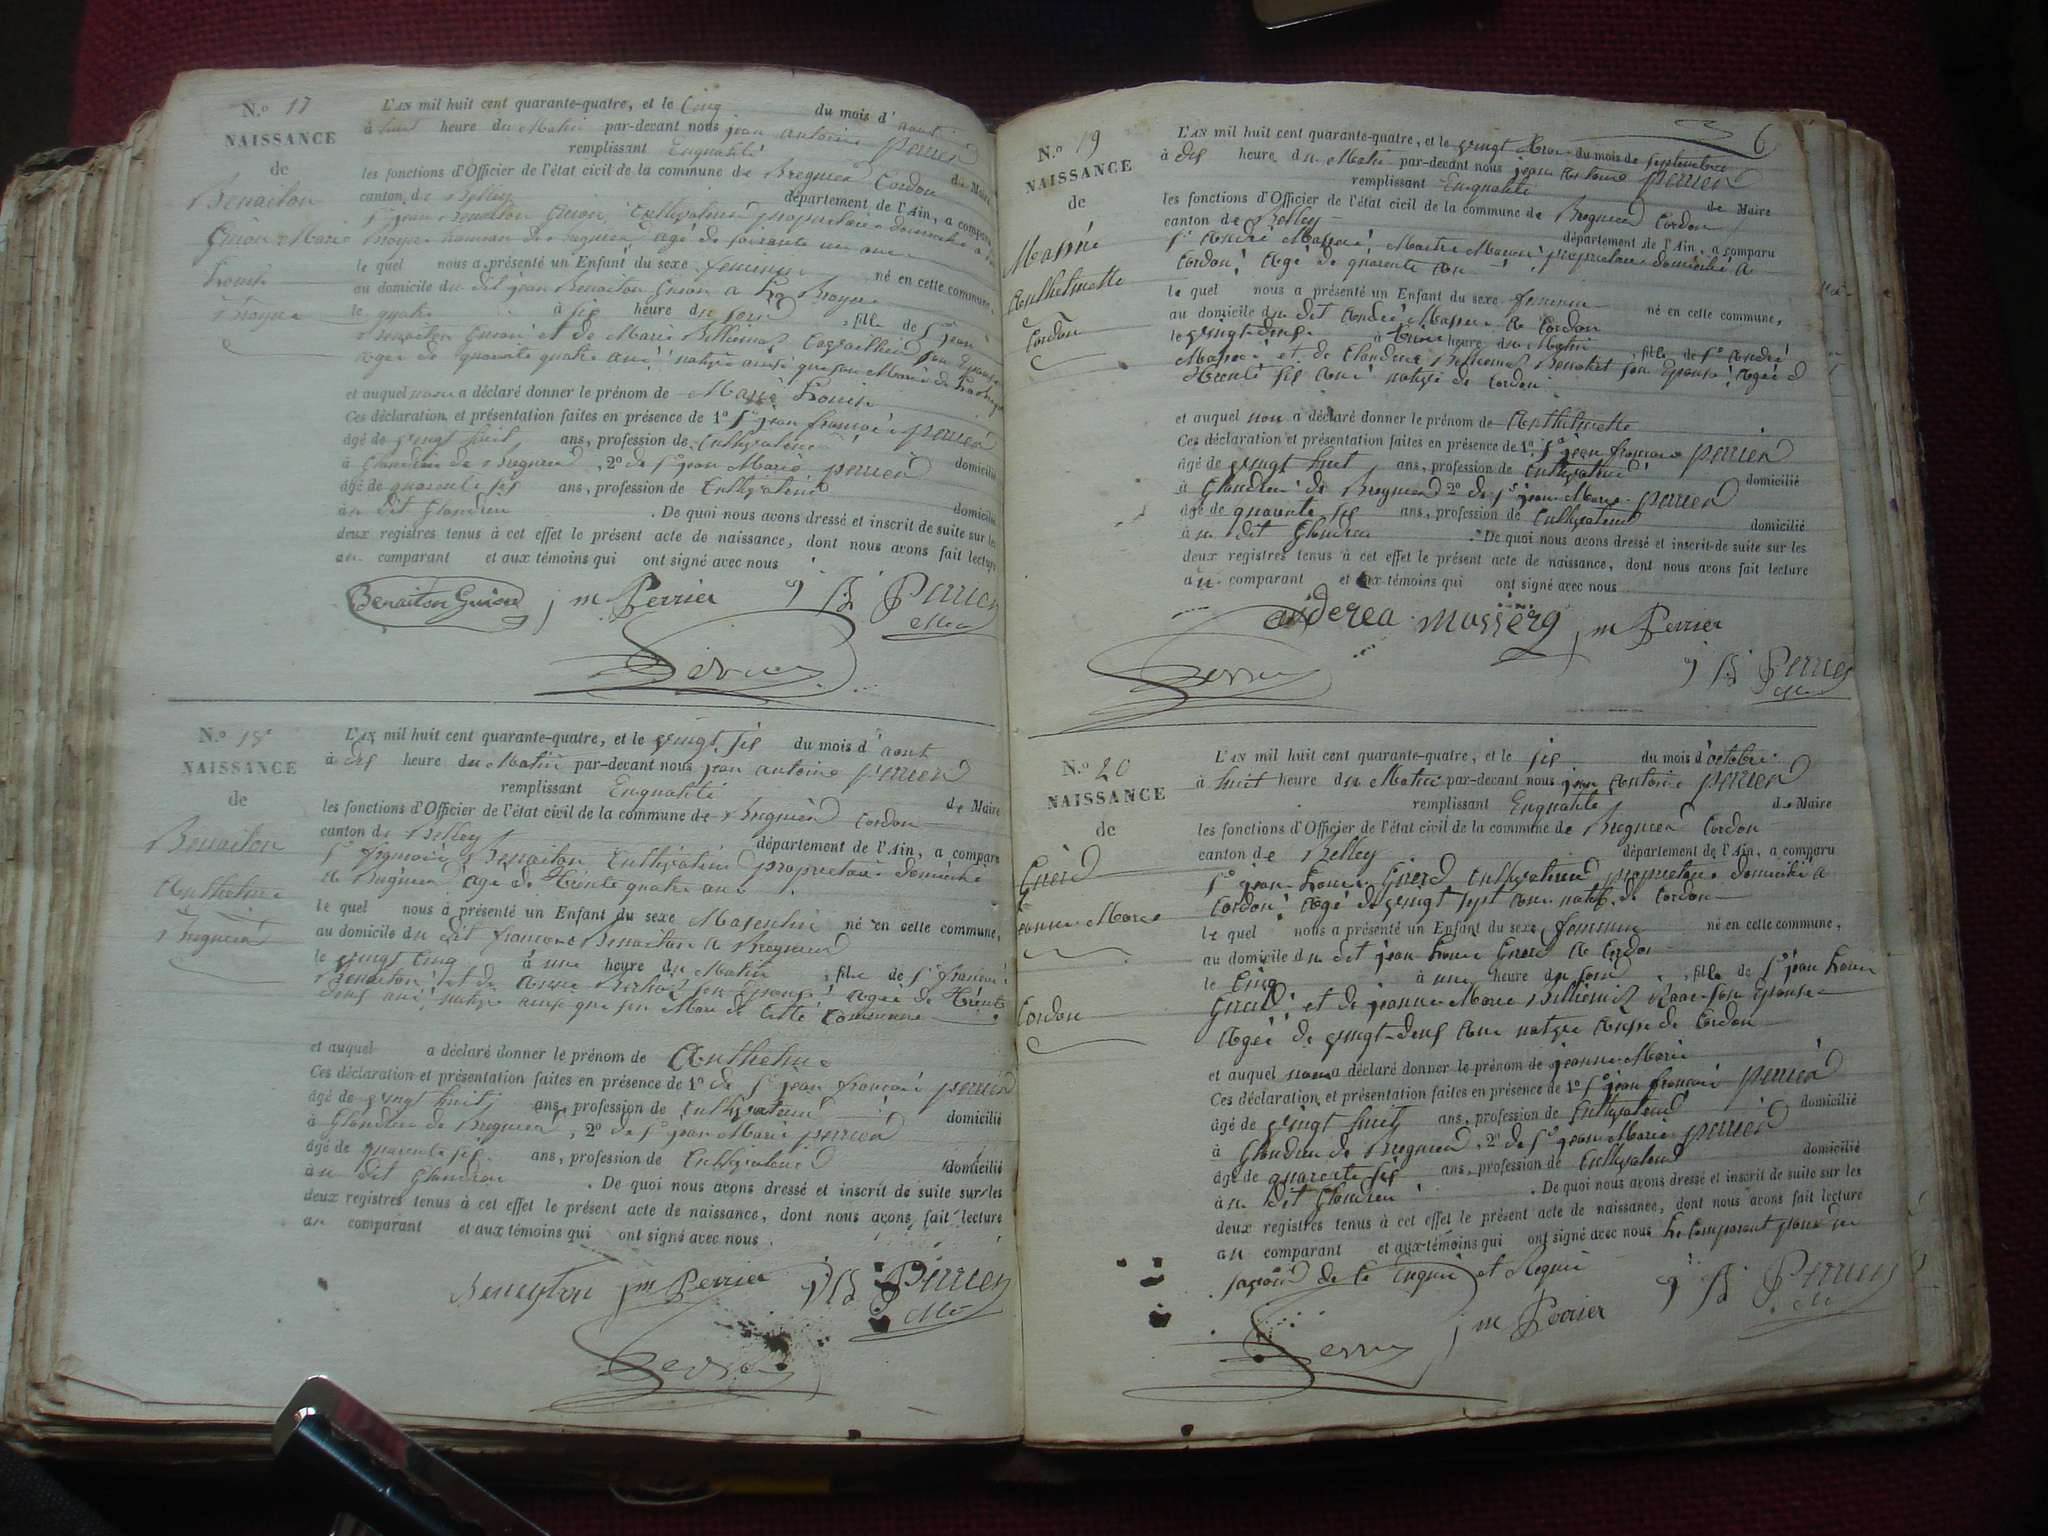 N.o 17
NAISSANCE
de
Benaiton
Guion Marie
Louise
Broyer
L'AN mil huit cent quarante-quatre, et le Cinq du mois d'aout
à huit heure du Matin par-devant nous jean antoine perrier
remplissant Enqualité de Maire
les fonctions d'Officier de l'état civil de la commune de Bregnier Cordon
canton de Belley département de l'Ain, a comparu
Sr jean Benaiton Guion Cultivateur propriétaire domicilié a
hameau de Bregnier agé de soixante un ans
le quel nous a présenté un Enfant du sexe feminin né en cette commune,
au domicile du dit jean Benaiton Guion a
le quatre à six heure du soir, fille de Sr jean
Benaiton Guion et de Marie Billiemaz son Epouse
agée de quarante quatre ans native ainsi que son Mari de
et auquel nous a déclaré donner le prénom de Marie Louise
Ces déclaration et présentation faites en présence de 1o Sr jean francois perrier
âgé de vingt huit ans, profession de Cultivateur domicilié
à Glandieu de Bregnier, 2o de Sr jean Marie perrier
âgé de quarante six ans, profession de Cultivateur domicilié
à u dit Glandieu. De quoi nous avons dressé et inscrit de suite sur les
deux registres tenus à cet effet le présent acte de naissance, dont nous avons fait lecture
au comparant et aux témoins qui ont signé avec nous
Benaiton Guion j m Perrier Perrier
Perrier
N.o 18
NAISSANCE
de
Benaiton
Anthelme
Bregnier
L'AN mil huit cent quarante-quatre, et le vingt six du mois d'aout
à dix heure du Matin par-devant nous jean antoine perrier
remplissant Enqualité de Maire
les fonctions d'Officier de l'état civil de la commune de Bregnier Cordon
canton de Belley département de l'Ain, a comparu
Sr francois Benaiton Cultivateur propriétaire domicilié
a Bregnier agé de trente quatre ans
le quel nous a présenté un Enfant du sexe Masculin né en cette commune,
au domicile du dit francois Benaiton a Bregnier
le vingt cinq à une heure du Matin, fils de Sr francois
Benaiton et de son Epouse agée de trente
deux ans native ainsi que son Mari de cette commune
et auquel a déclaré donner le prénom de Anthelme
Ces déclaration et présentation faites en présence de 1o de Sr jean francois perrier
âgé de vingt huit ans, profession de Cultivateur domicilié
à Glandieu de Bregnier, 2o de Sr jean Marie perrier
âgé de quarante six ans, profession de Cultivateur domicilié
à u dit Glandieu. De quoi nous avons dressé et inscrit de suite sur les
deux registres tenus à cet effet le présent acte de naissance, dont nous avons fait lecture
au comparant et aux témoins qui ont signé avec nous
Beneyton j m Perrier Perrier
Perrier
6
N.o 19
NAISSANCE
de
Anthelmette
Cordon
L'AN mil huit cent quarante-quatre, et le vingt trois du mois de septembre
à dix heure du Matin par-devant nous jean antoine perrier
remplissant Enqualité de Maire
les fonctions d'Officier de l'état civil de la commune de Bregnier Cordon
canton de Belley département de l'Ain, a comparu
Sr André Maître Maçon propriétaire domicilié a
Cordon agé de quarante ans
le quel nous a présenté un Enfant du sexe feminin né en cette commune,
au domicile du dit André a Cordon
le vingt deux à trois heure du Matin, fille de Sr André
et de Claudine son Epouse agée d
trente six ans native de Cordon
et auquel nous a déclaré donner le prénom de Anthelmette
Ces déclaration et présentation faites en présence de 1o Sr jean francois perrier
âgé de vingt huit ans, profession de Cultivateur domicilié
à Glandieu de Bregnier 2o de Sr jean Marie perrier
âgé de quarante six ans, profession de Cultivateur domicilié
à u dit Glandieu. De quoi nous avons dressé et inscrit de suite sur les
deux registres tenus à cet effet le présent acte de naissance, dont nous avons fait lecture
au comparant et aux témoins qui ont signé avec nous
anderea j m Perrier
Perrier
Perrier
N.o 20
NAISSANCE
de
jeanne Marie
Cordon
L'AN mil huit cent quarante-quatre, et le six du mois d'octobre
à huit heure du Matin par-devant nous jean antoine perrier
remplissant Enqualité de Maire
les fonctions d'Officier de l'état civil de la commune de Bregnier Cordon
canton de Belley département de l'Ain, a comparu
Sr jean Louis Cultivateur propriétaire domicilié a
Cordon agé de vingt sept ans natif de Cordon
le quel nous a présenté un Enfant du sexe feminin né en cette commune,
au domicile du dit jean Louis a Cordon
le cinq à une heure du soir, fille de Sr jean Louis
et de jeanne Marie son épouse
agée de vingt-deux ans native aussi de Cordon
et auquel nous a déclaré donner le prénom de jeanne Marie
Ces déclaration et présentation faites en présence de 1o Sr jean francois perrier
âgé de vingt huit ans, profession de Cultivateur domicilié
à Glandieu de Bregnier, 2o de Sr jean Marie perrier
âgé de quarante six ans, profession de Cultivateur domicilié
à u dit Glandieu. De quoi nous avons dressé et inscrit de suite sur les
deux registres tenus à cet effet le présent acte de naissance, dont nous avons fait lecture
au comparant et aux témoins qui ont signé avec nous Le Comparant pour ne
savoir de ce Enquis et Requis
Perrier j m Perrier Perrier